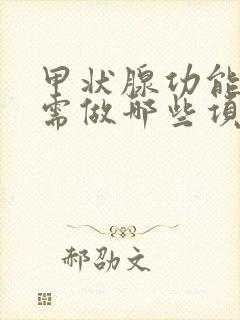 甲状腺功能
需做哪些项
郝劭文